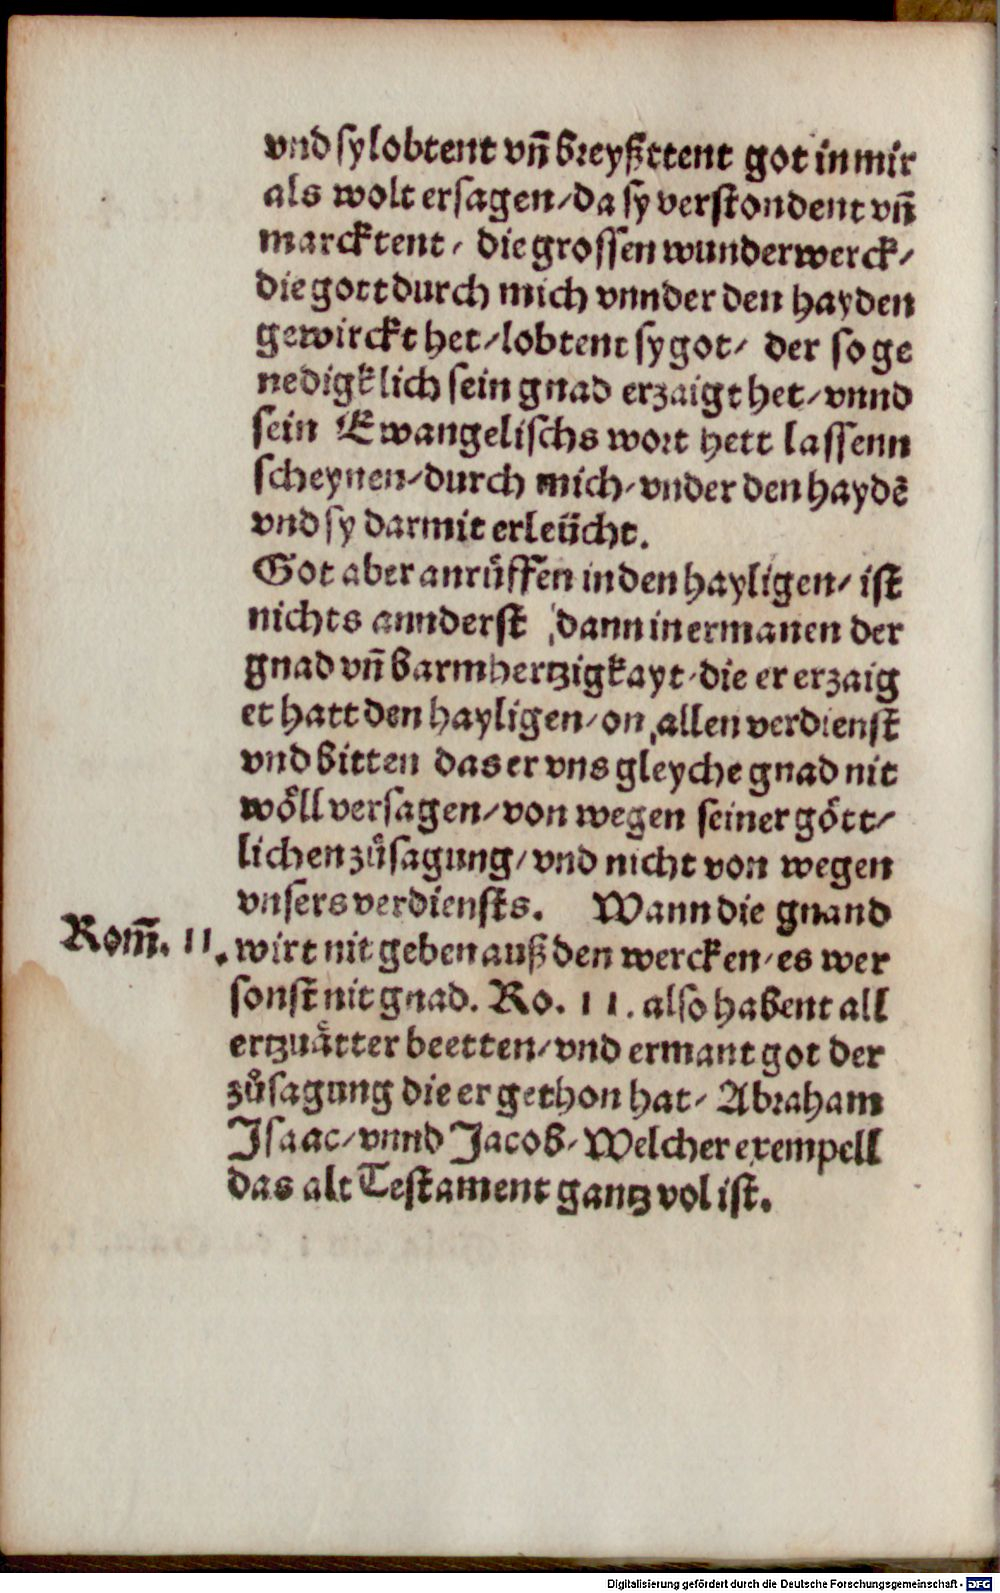 vnd sy lobtent vñ breyßttent got in mir
als wolt er sagen/ da sy verstondent vñ
marcktent/ die grossen wunderwerck/
die gott durch mich vnnder den hayden
gewirckt het/ lobtent sy got/ der so ge
nedigklich sein gnad erzaigt het/ vnnd
sein Ewangelischs wort hett lassenn
scheynen/ durch mich/ vnder den haydẽ
vnd sy darmit erleücht.
Got aber anrůffen in den hayligen/ ist
nichts annderst dann in ermanen der
gnad vñ barmhertzigkayt/ die er erzaig
et hatt den hayligen/ on allen verdienst
vnd bitten das er vns gleyche gnad nit
wöll versagen/ von wegen seiner gött/
lichen zůsagung/ vnd nicht von wegen
vnsers verdiensts. Wann die gnand
Rom̃. 11. wirt nit geben auß den wercken/ es wer
sonst nit gnad. Ro. 11. also habent all
ertzuåtter beetten/ vnd ermant got der
zůsagung die er gethon hat/ Abraham
Isaac/ vnnd Jacob/ Welcher exempell
das alt Testament gantz vol ist.
Digitalisierung gefördert durch die Deutsche Forschungsgemeinschaft - DFG